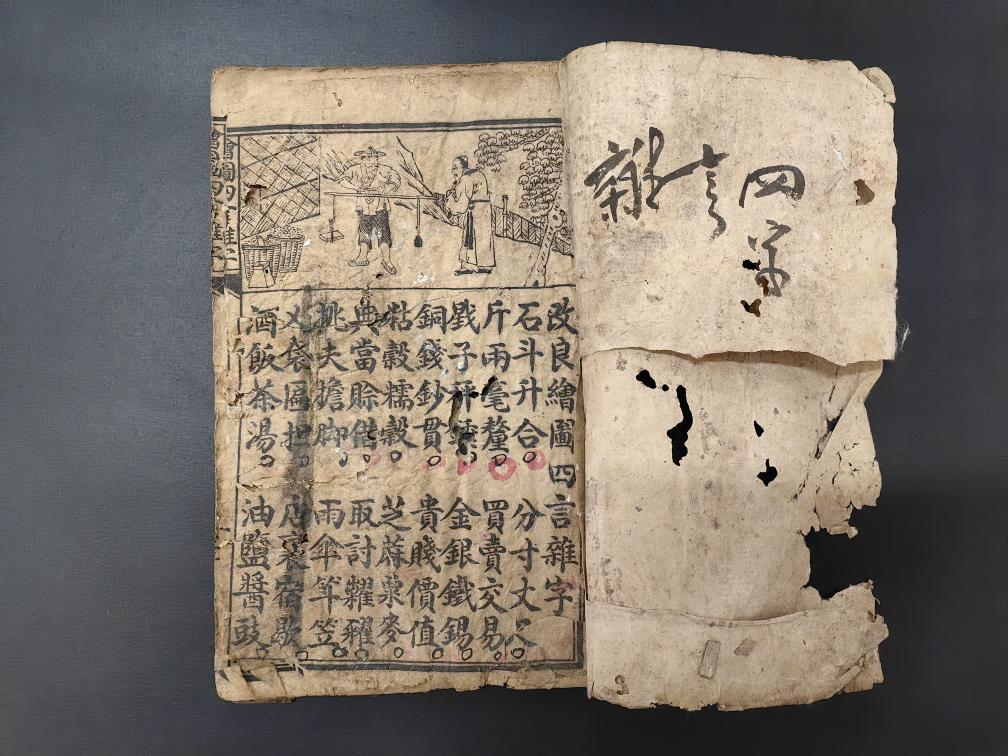 四言雜字
改良繪圖四言雜字
石斗升合。分寸丈尺。
斤兩毫釐。買賣交易。
戥子秤錘。金銀鐵錫。
銅錢鈔貫。貴賤價值。
粘穀糯穀。芝蔴粟麥。
典當賒借。取討糶糴。
挑夫擔脚。雨傘笠。
袋担。店裏宿歇。
酒飯茶湯。油鹽醬豉。
繪圖四言雜字